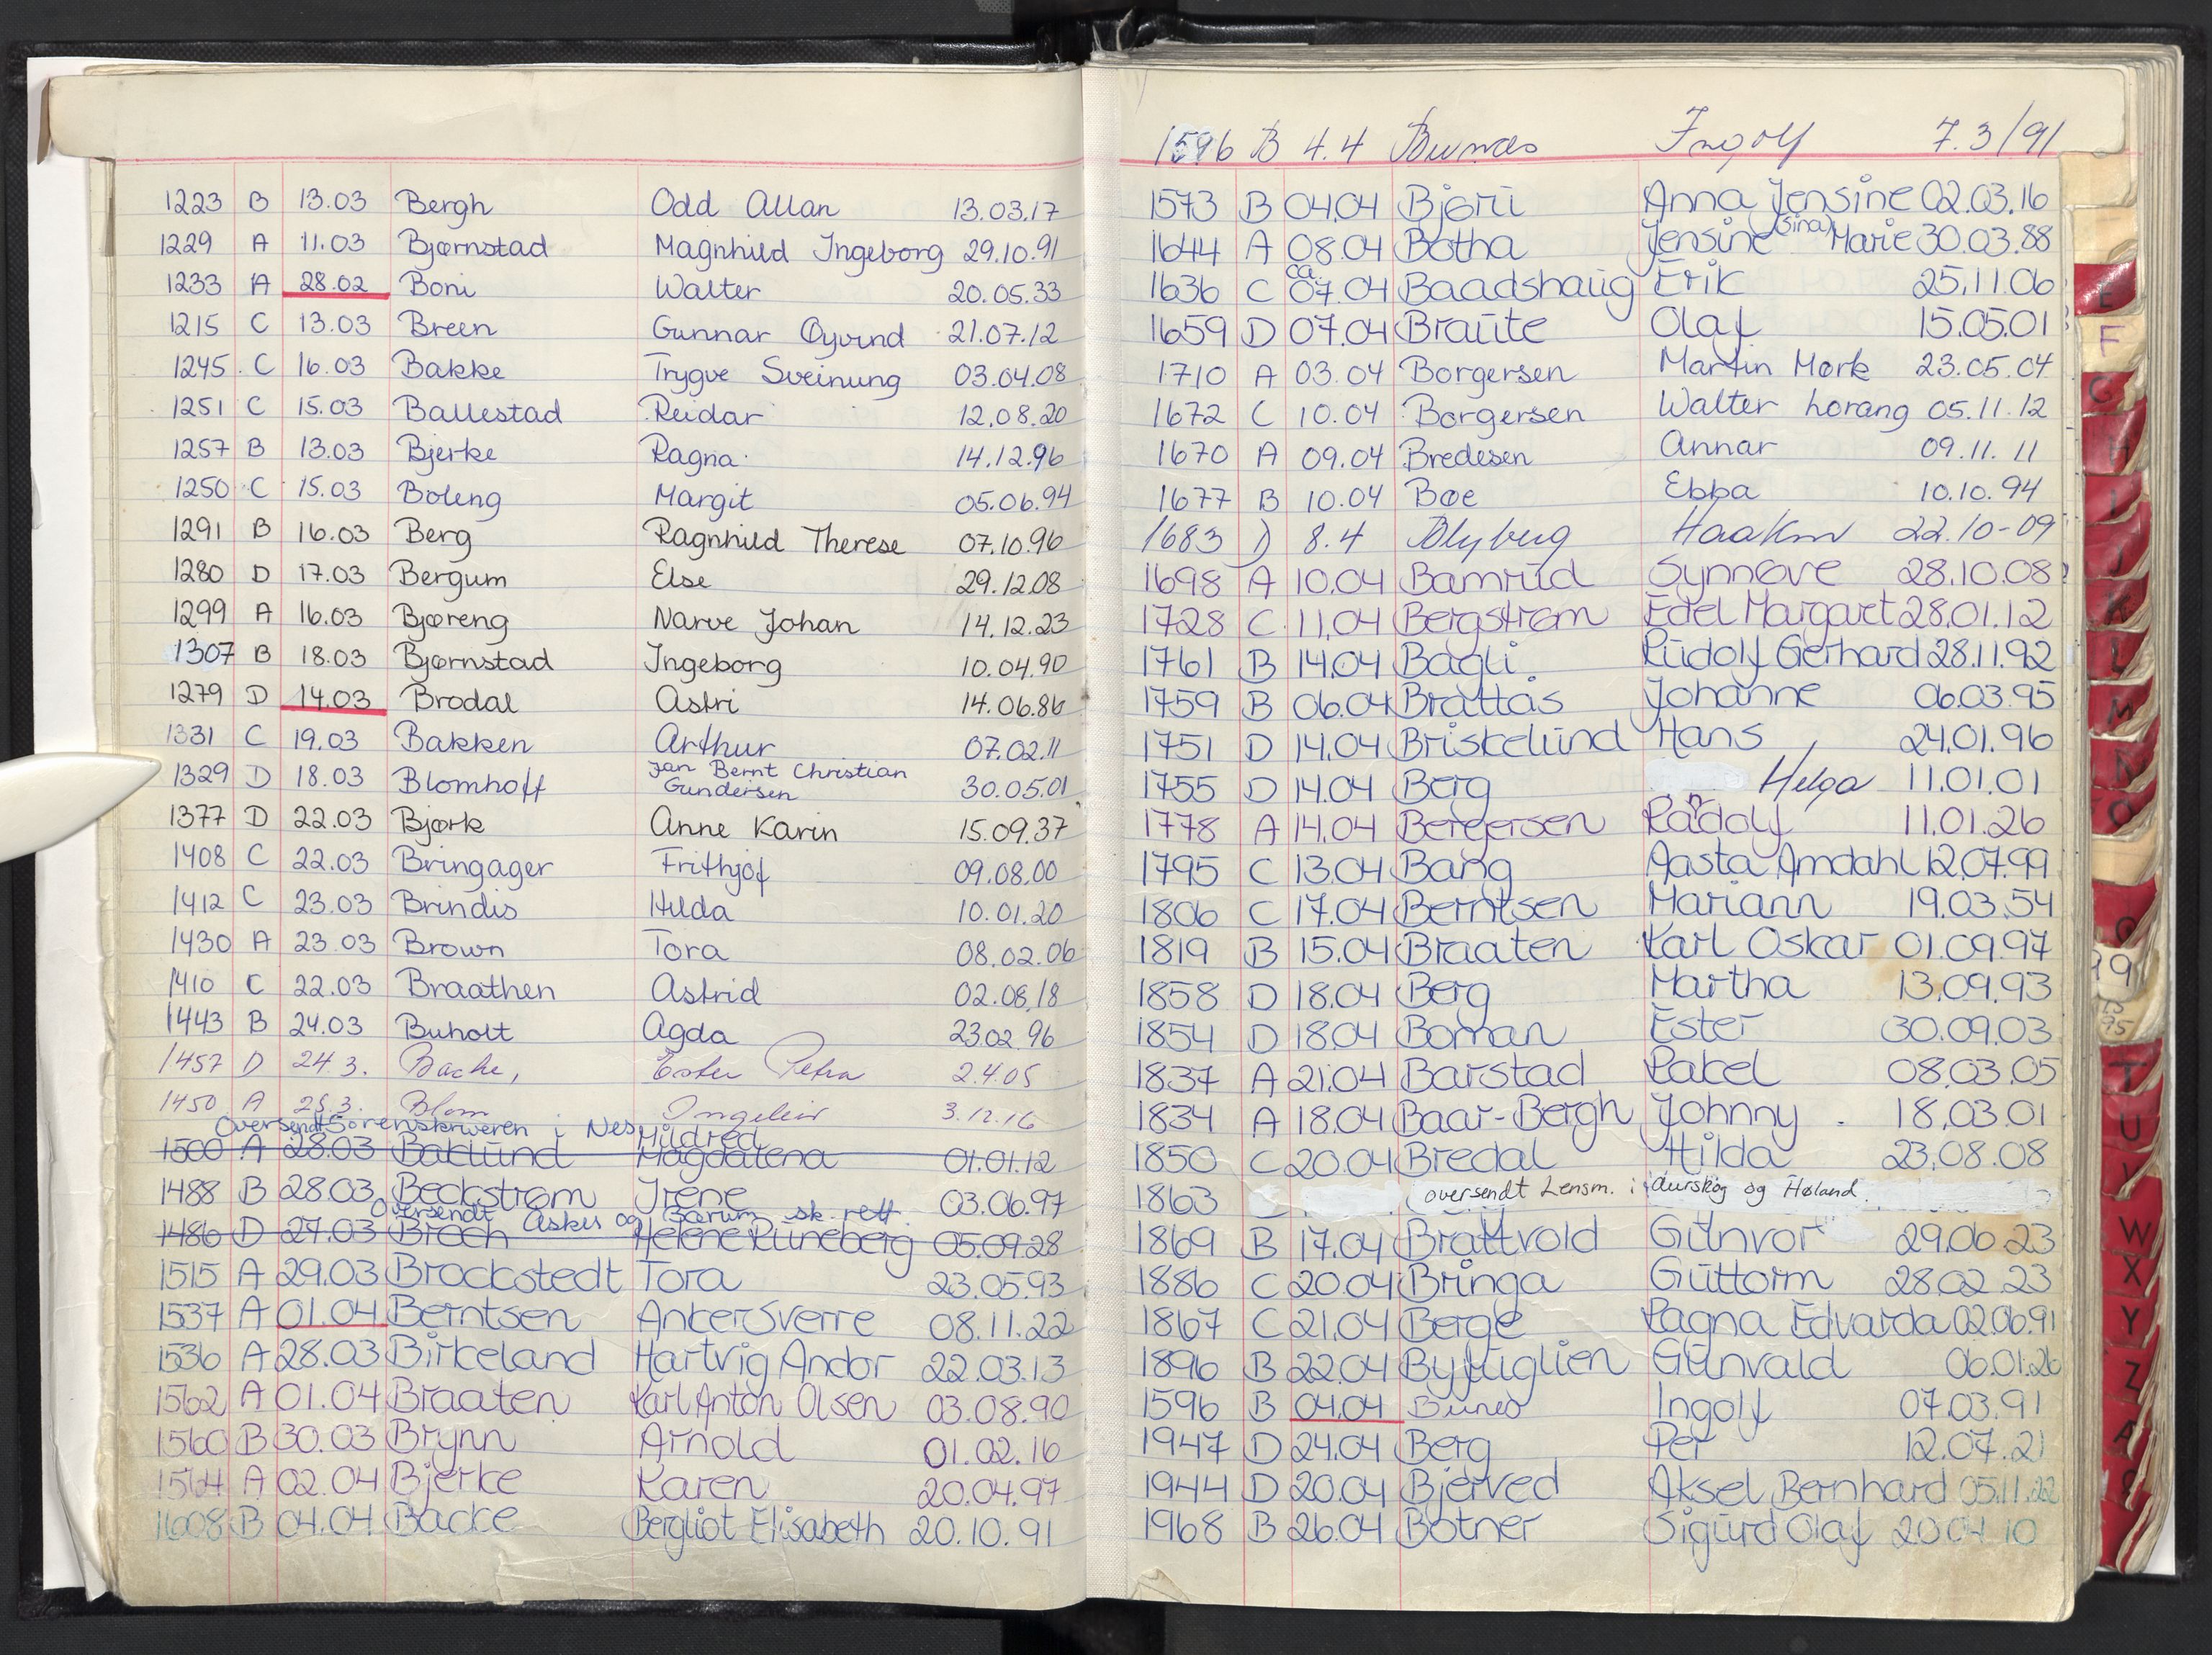 1223 B 13.03 Bergh Odd Allan 13.03.17
1229 A 11.03 Bjørnstad Magnhild Ingeborg 29.10.91
1233 A 28.02 Boni Walter 20.05.33
1215 C 13.03 Breen Gunnar Øyvind 21.07.12
1245 C 16.03 Bakke Trygve Sveinung 03.04.08
1251 C 15.03 Ballestad Reidar 12.08.20
1257 B 13.03 Bjerke Ragna 14.12.96
1250 C 15.03 Boleng Margit 05.06.94
1291 B 16.03 Berg Ragnhild Therese 07.10.96
1280 D 17.03 Bergum Else 29.12.08
1299 A 16.03 Bjøreng Narve Johan 14.12.23
1307 B 18.03 Bjørnstad Ingeborg 10.04.90
1279 D 14.03 Brodal Astri 14.06.86
1331 C 19.03 Bakken Arthur 07.02.11
1329 D 18.03 Blomhoff Jan Bernt Christian Gundersen 30.05.01
1377 D 22.03 Bjørk Anne Karin 15.09.37
1408 C 22.03 Bringager Frithjof 09.08.00
1412 C 23.03 Brindis Hilda 10.01.20
1430 A 23.03 Brown Tora 08.02.06
1410 C 22.03 Braathen Astrid 02.08.18
1443 B 24.03 Buholt Agda 23.02.96
1457 D 24.3. Backe, Ester Petra 2.4.05
1450 A 25.3. Blom 3.12.16
Oversendt Sorenskriveren i Nes
1500 A 28.03 Baklund Mildred Magdalena 01.01.12
1488 B 28.03 Beckstrøm Irene 03.06.97
Oversendt Asker og Bærum sk.rett.
1486 D 27.03 Broch Helene Runeberg 05.09.28
1515 A 29.03 Brockstedt Tora 23.05.93
1537 A 01.04 Berntsen Anker Sverre 08.11.22
1536 A 28.03 Birkeland Hartvig Andor 22.03.13
1562 A 01.04 Braaten Karl Anton Olsen 03.08.90
1560 B 30.03 Brynn Arnold 01.02.16
1564 A 02.04 Bjerke Karen 20.04.97
1608 B 04.04 Backe Bergliot Elisabeth 20.10.91
1596 B 4.4 Ingolf 7.3/91
1573 B 04.04 Bjøri Anna Jensine 02.03.16
1644 A 08.04 Botha Jensine (Sina) Marie 30.03.88
1636 C ca 07.04 Baadshaug Erik 25.11.06
1659 D 07.04 Braute Olaf 15.05.01
1710 A 03.04 Borgersen Martin Mørk 23.05.04
1672 C 10.04 Borgersen Walter Lorang 05.11.12
1670 A 09.04 Bredesen Annar 09.11.11
1677 B 10.04 Bøe Ebba 10.10.94
1683 D 8.4 Blyberg Haakon 22.10-09
1698 A 10.04 Bamrud Synnøve 28.10.08
1728 C 11.04 Bergstrøm Edel Margaret 28.01.12
1761 B 14.04 Bagli Rudolf Gerhard 28.11.92
1759 B 06.04 Brattås Johanne 06.03.95
1751 D 14.04 Briskelund Hans 24.01.96
1755 D 14.04 Berg Helga 11.01.01
1778 A 14.04 Bergersen 11.01.26
1795 C 13.04 Bang Aasta Amdahl 12.07.99
1806 C 17.04 Berntsen Mariann 19.03.54
1819 B 15.04 Braaten Karl Oskar 01.09.97
1858 D 18.04 Berg Martha 13.09.93
1854 D 18.04 Boman Ester 30.09.03
1837 A 21.04 Barstad Rakel 08.03.05
1834 A 18.04 Baar-Bergh Johnny 18.03.01
1850 C 20.04 Bredal Hilda 23.08.08
1863 oversendt Lensm. i Aurskog og Høland.
1869 B 17.04 Brattvold Gunvor 29.06.23
1886 C 20.04 Bringa Guttorm 28.02.23
1867 C 21.04 Berge Ragna Edvarda 02.06.91
1896 B 22.04 Byfuglien Gunvald 06.01.26
1596 B 04.04 Ingolf 07.03.91
1947 D 24.04 Berg Per 12.07.21
1944 D 20.04 Bjerved Aksel Bernhard 05.11.22
1968 B 26.04 Botner Sigurd Olaf 20.04.10
E
F
G
H
I
J
K
L
M
N
O
T
U
V
W
X
Y
Z